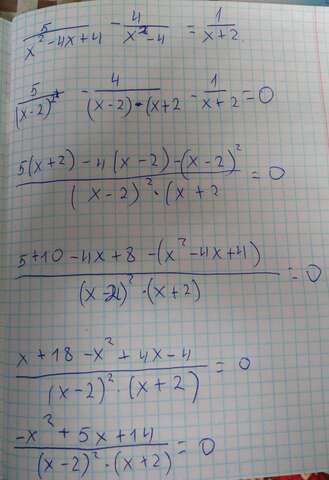 5/(x² - 4x + 4) - 4/(x² - 4) = 1/(x + 2)
5/(x - 2)² - 4/((x - 2)·(x + 2 - 1/(x + 2) = 0
(5(x + 2) - 4(x - 2) - (x - 2)²)/((x - 2)²·(x + 2 = 0
(5 + 10 - 4x + 8 - (x² - 4x + 4))/((x - 2)²·(x + 2)) = 0
(x + 18 - x² + 4x - 4)/((x - 2)²·(x + 2)) = 0
(-x² + 5x + 14)/((x - 2)²·(x + 2)) = 0